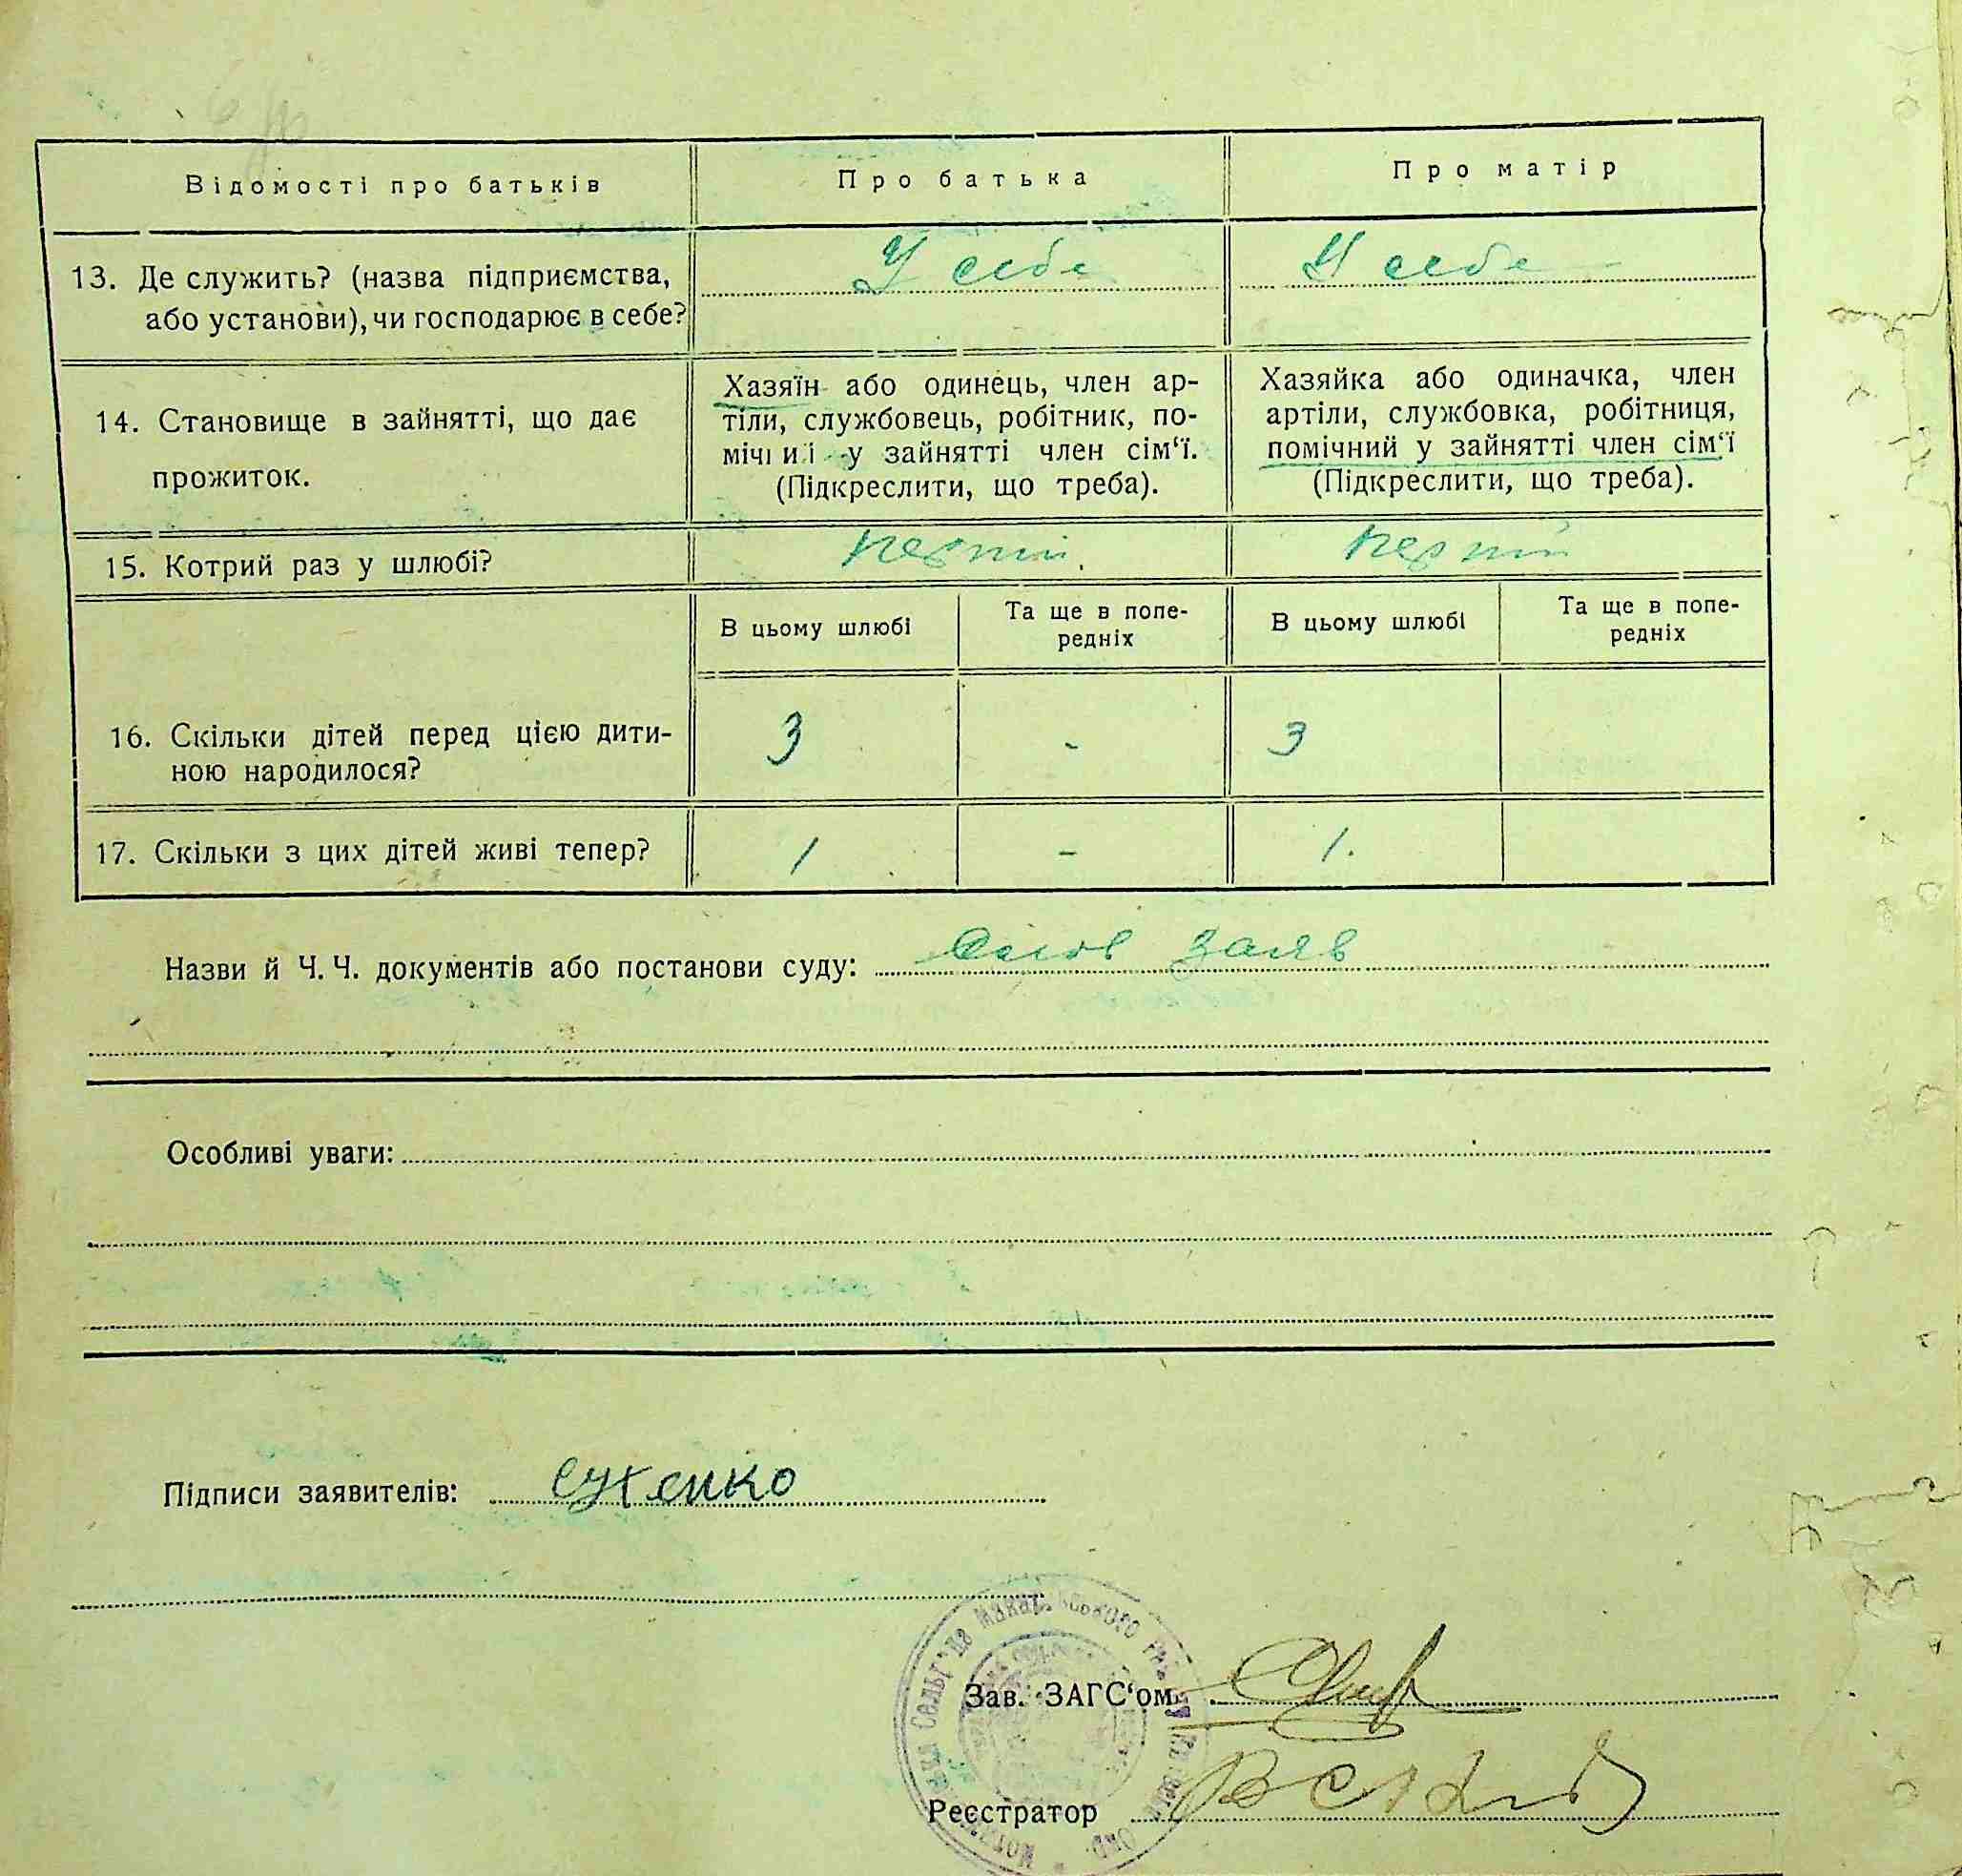 Відомості про батьків
Про батька
Про матір
13. Де служить? (назва підприємства,
або установи), чи господарює в себе?
У себе
У себе
14. Становище в зайнятті, що дає
прожиток.
Хазяїн або одинець, член ар-
тіли, службовець, робітник, по-
мічний у зайнятті член сім‘ї.
(Підкреслити, що треба).
Хазяйка або одиначка, член
артіли, службовка, робітниця,
помічний у зайнятті член сім‘ї
(Підкреслити, що треба).
15. Котрий раз у шлюбі?
В цьому шлюбі
Та ще в попе-
редніх
В цьому шлюбі
Та ще в попе-
редніх
16. Скільки дітей перед цією дити-
ною народилося?
3
-
3
17. Скільки з цих дітей живі тепер?
1
-
1.
Назви й Ч. Ч. документів або постанови суду: заяв
Особливі уваги:
Підписи заявителів: Сухенко
Зав. ЗАГС‘ом
Реєстратор